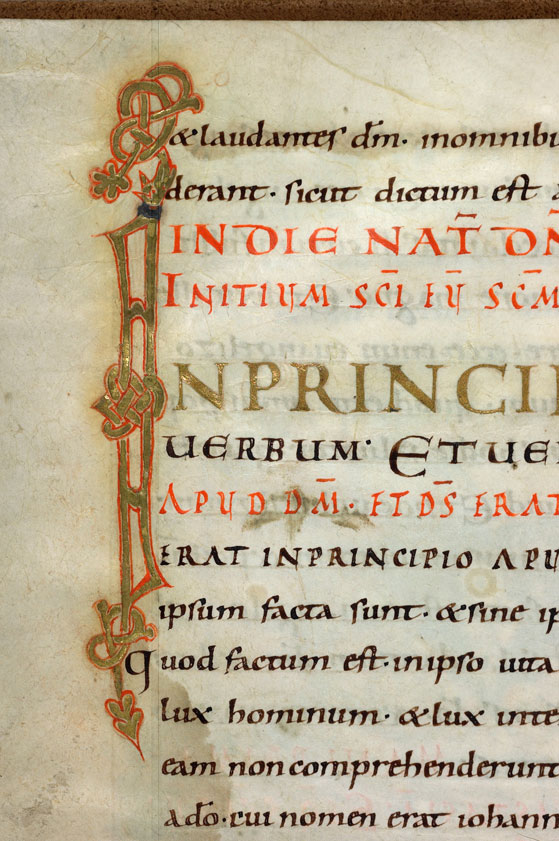 &laudantes dm̄. inomnibu
derant. sicut dictum est a
INDIE NAT̄ DN̄
INITIUM SC̄I EŪ SC̄M
INPRINCI
UERBUM. ETUE
APUD DM̄. ETDS̄ ERAT
ERAT INPRINCIPIO APU
ipsum facta sunt. &sine ip
quod factum est. inipso uita
lux hominum. &lux inte
eam noncomprehenderunt
ado̅. cui nomen erat iohann